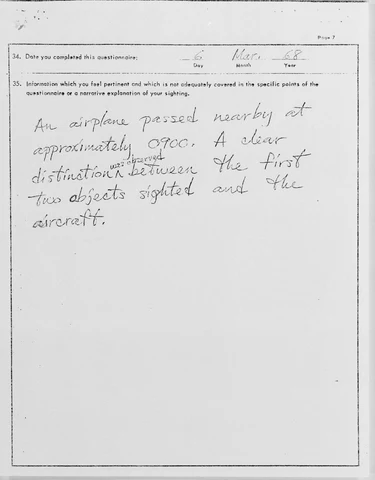 Page 7
34. Date you completed this questionnaire: 6 Mar. 68
Day Month Year
35. Information which you feel pertinent and which is not adequately covered in the specific points of the
questionnaire or a narrative explanation of your sighting.
An airplane passed nearby at
approximately 0900. A clear
was observed
distinction ^ between the first
two objects sighted and the
aircraft.